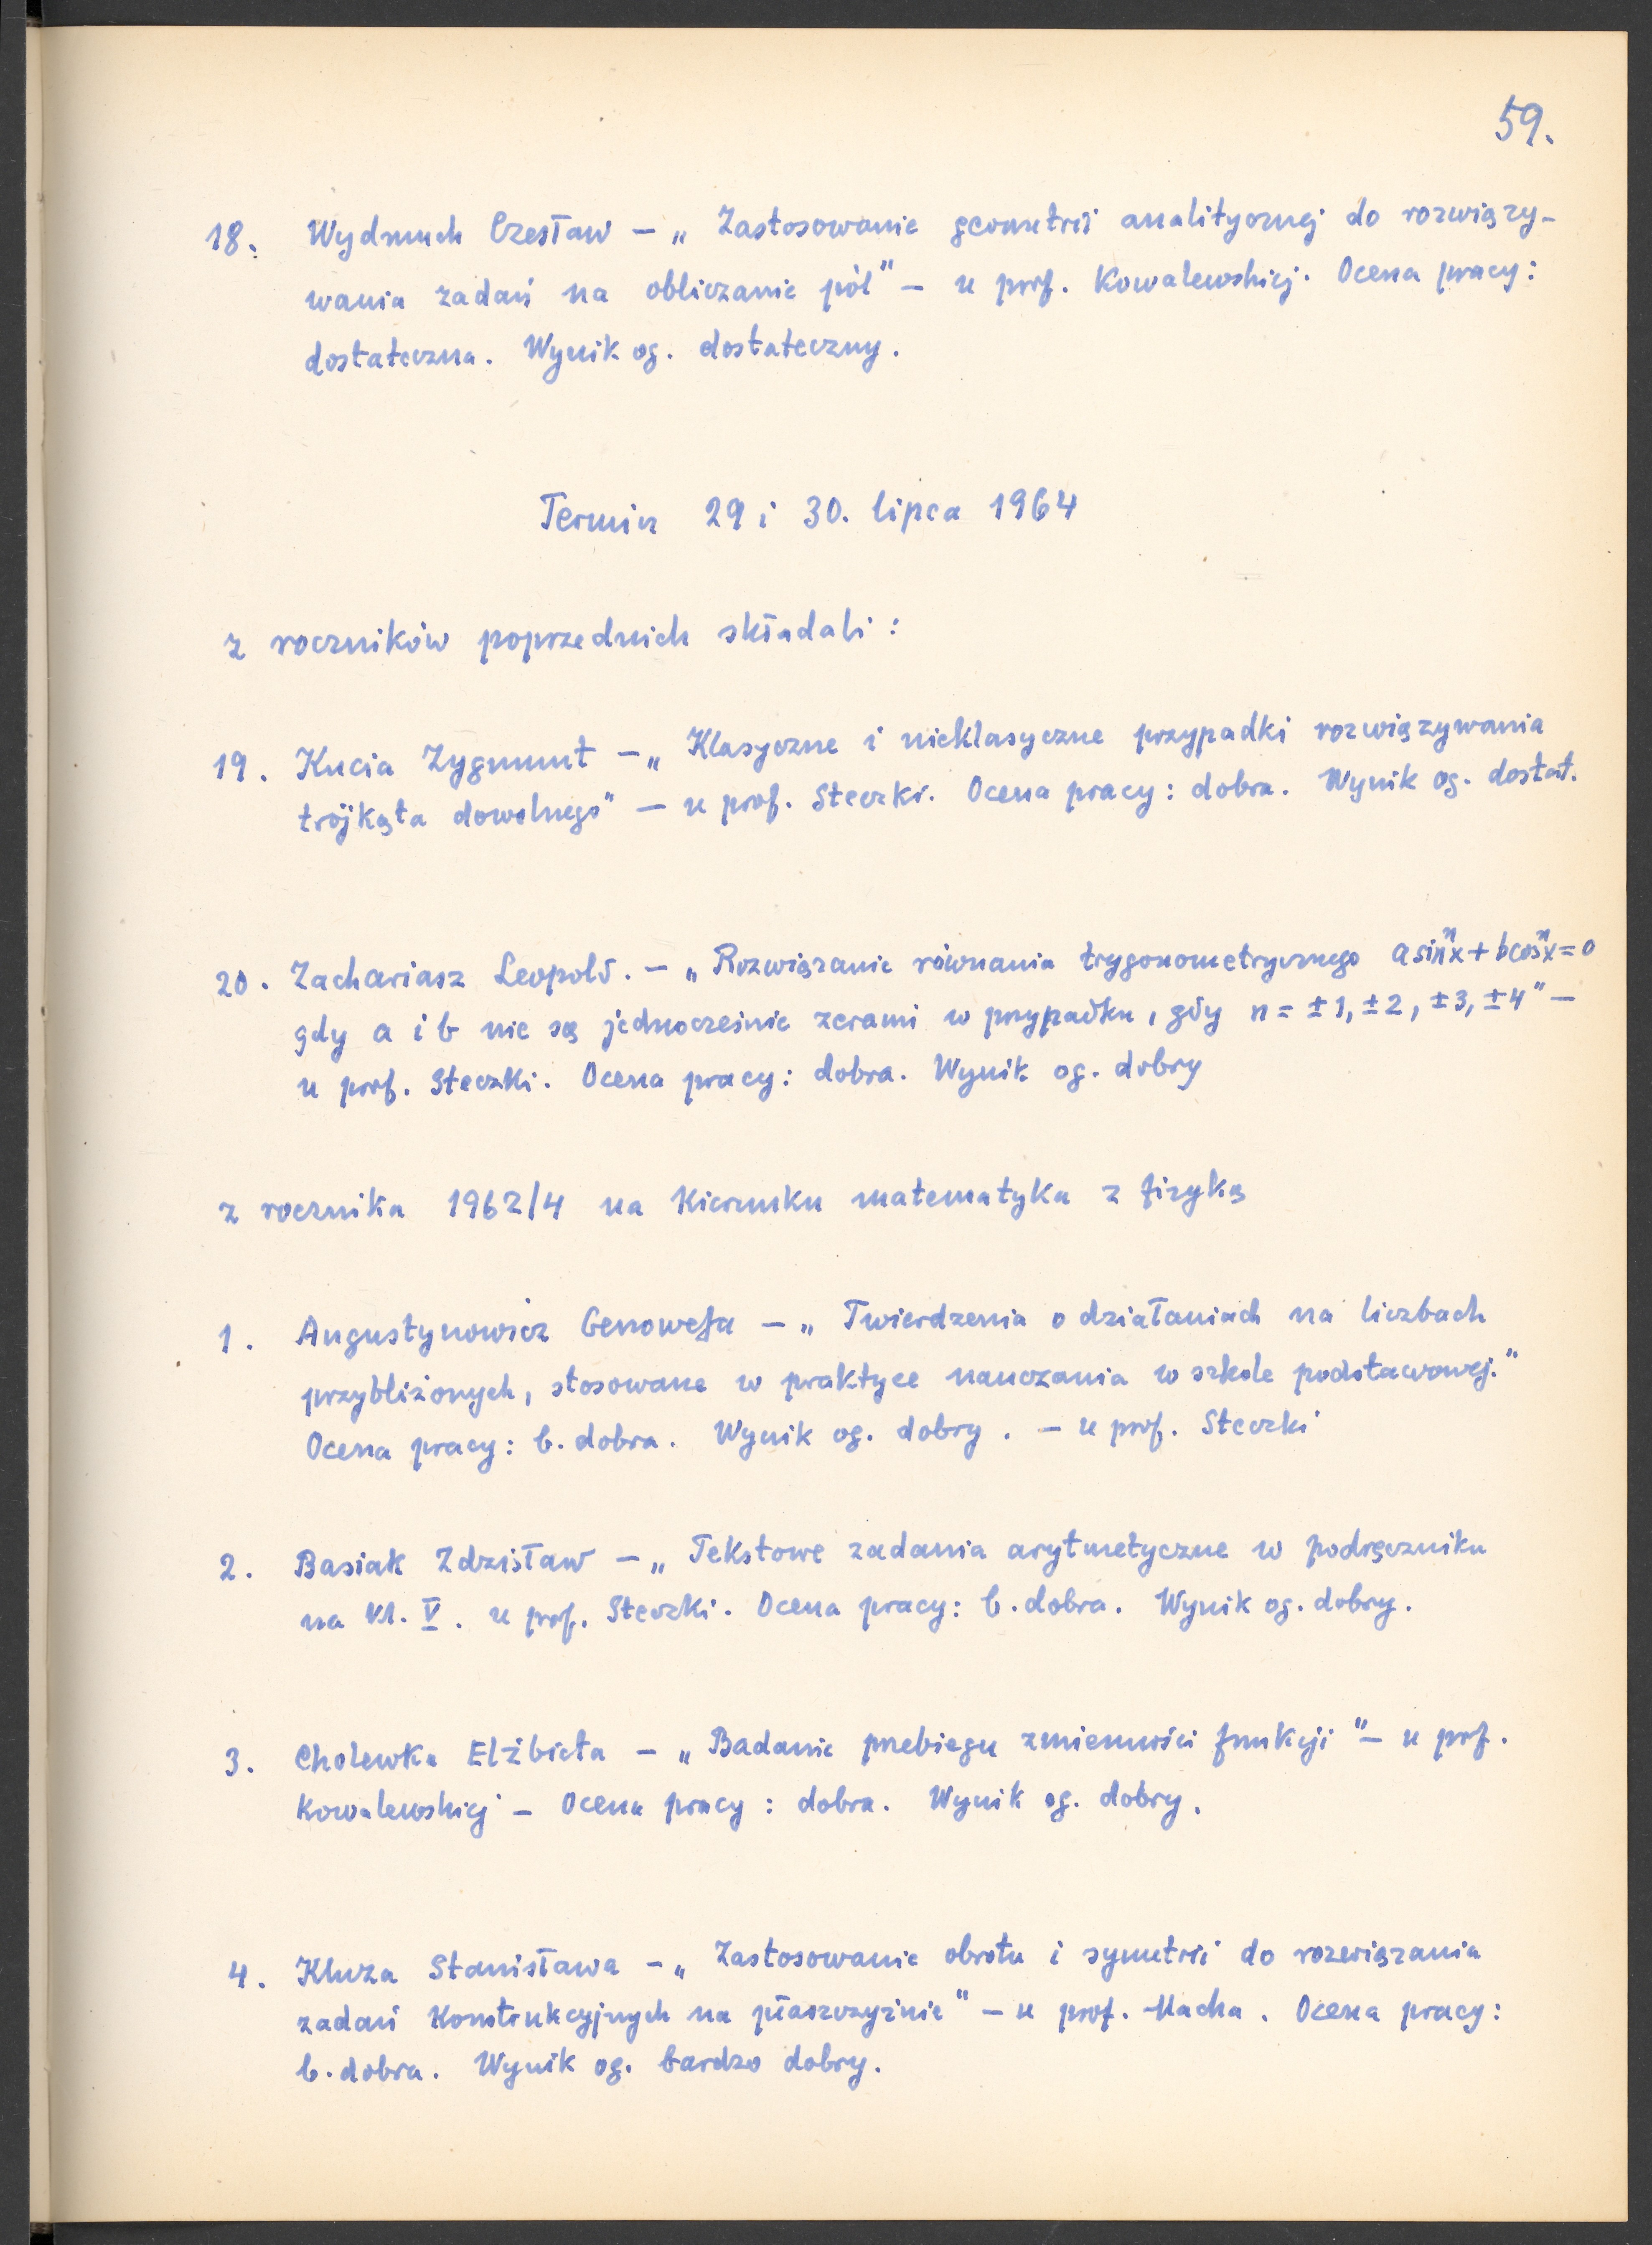 59.
18. Wydmuch Czesław – „Zastosowanie geometrii analitycznej do rozwiązy-
wania zadań na obliczanie pól" – u prof. Kowalewskiej. Ocena pracy:
dostateczna. Wynik og. dostateczny.
Termin 29 i 30. lipca 1964
z roczników poprzednich składali:
19. Kucia Zygmunt – „Klasyczne i nieklasyczne przypadki rozwiązywania
trójkąta dowolnego" – u prof. Steczki. Ocena pracy: dobra. Wynik og. dostat.
20. Zachariasz Leopold. – „Rozwiązanie równania trygonometrycznego a sinⁿx + b cosⁿx = 0
gdy a i b nie są jednocześnie zerami w przypadku, gdy n = ±1, ±2, ±3, ±4" –
u prof. Steczki. Ocena pracy: dobra. Wynik og. dobry
z rocznika 1962/4 na kierunku matematyka z fizyką
1. Augustynowicz Genowefa – „Twierdzenia o działaniach na liczbach
przybliżonych, stosowane w praktyce nauczania w szkole podstawowej."
Ocena pracy: b. dobra. Wynik og. dobry. – u prof. Steczki
2. Basiak Zdzisław – „Tekstowe zadania arytmetyczne w podręczniku
na kl. V. u prof. Steczki. Ocena pracy: b. dobra. Wynik og. dobry.
3. Cholewka Elżbieta – „Badanie przebiegu zmienności funkcji" – u prof.
Kowalewskiej – Ocena pracy: dobra. Wynik og. dobry.
4. Kluza Stanisława – „Zastosowanie obrotu i symetrii do rozwiązania
zadań konstrukcyjnych na płaszczyźnie" – u prof. Macha. Ocena pracy:
b. dobra. Wynik og. bardzo dobry.